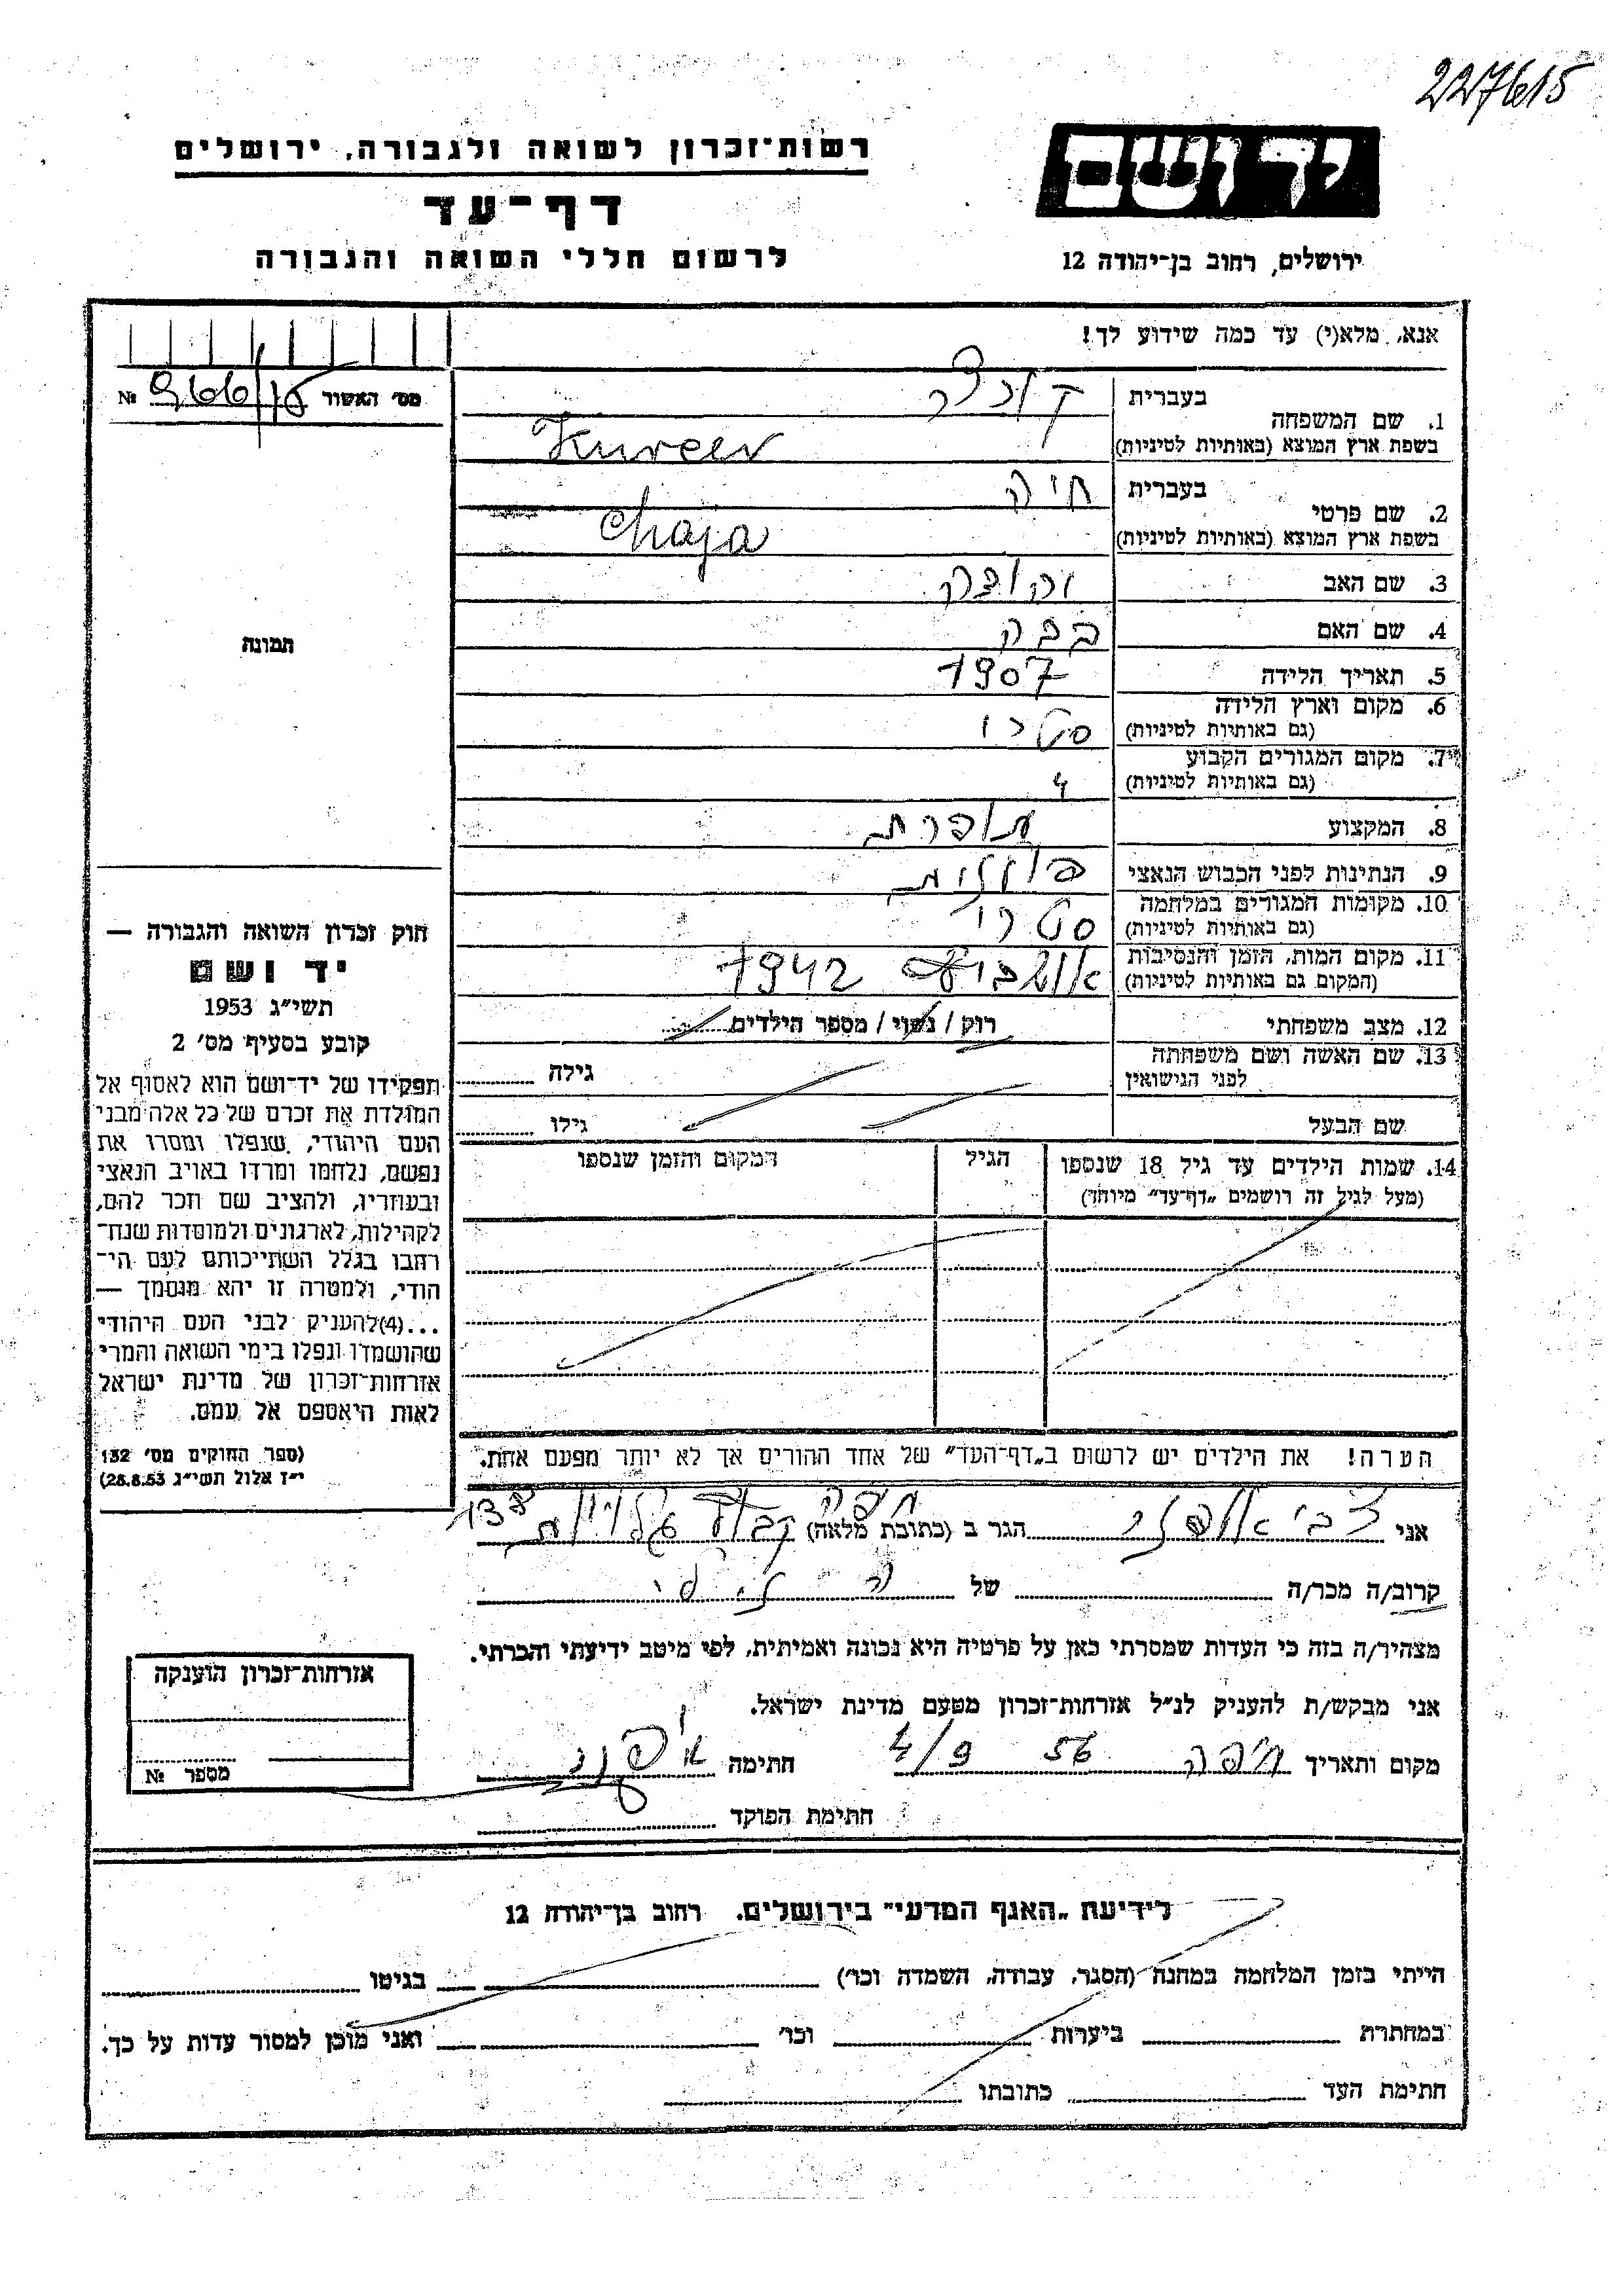 227615
רשות־זכרון לשואה ולגבורה, ירושלים
יד ושם
דף־עד
לרשום חללי השואה והגבורה
ירושלים, רחוב בן־יהודה 12
אנא, מלא(י) עד כמה שידוע לך!
מס׳ האשור №
1. שם המשפחה
בעברית
בשפת ארץ המוצא (באותיות לטיניות)
2. שם פרטי
בעברית חיה
בשפת ארץ המוצא (באותיות לטיניות) Chaja
3. שם האב
4. שם האם
5. תאריך הלידה 1907
6. מקום וארץ הלידה
(גם באותיות לטיניות) סטרי
7. מקום המגורים הקבוע
(גם באותיות לטיניות)
8. המקצוע תופרת
9. הנתינות לפני הכבוש הנאצי פולנית
10. מקומות המגורים במלחמה
(גם באותיות לטיניות) סטרי
11. מקום המות, הזמן והנסיבות
(המקום גם באותיות לטיניות) 1942
12. מצב משפחתי רוק / נשוי / מספר הילדים
13. שם האשה ושם משפחתה גילה
לפני הנישואין
שם הבעל גילו
14. שמות הילדים עד גיל 18 שנספו הגיל המקום והזמן שנספו
(מעל לגיל זה רושמים „דף־עד” מיוחד)
הערה! את הילדים יש לרשום ב„דף־העד” של אחד ההורים אך לא יותר מפעם אחת.
תמונה
חוק זכרון השואה והגבורה —
יד ושם
תשי״ג 1953
קובע בסעיף מס׳ 2
תפקידו של יד־ושם הוא לאסוף אל
המולדת את זכרם של כל אלה מבני
העם היהודי, שנפלו ומסרו את
נפשם, נלחמו ומרדו באויב הנאצי
ובעוזריו, ולהציב שם וזכר להם,
לקהילות, לארגונים ולמוסדות שנח־
רבו בגלל השתייכותם לעם הי־
הודי, ולמטרה זו יהא מוסמך —
...(4)להעניק לבני העם היהודי
שהושמדו ונפלו בימי השואה והמרי
אזרחות־זכרון של מדינת ישראל
לאות היאספם אל עמם.
(ספר החוקים מס׳ 132
י״ז אלול תשי״ג 28.8.53)
אני צבי הגר ב (כתובת מלאה) חיפה 138
קרוב/ה מכר/ה של
מצהיר/ה בזה כי העדות שמסרתי כאן על פרטיה היא נכונה ואמיתית, לפי מיטב ידיעתי והכרתי.
אני מבקש/ת להעניק לנ״ל אזרחות־זכרון מטעם מדינת ישראל.
מקום ותאריך חיפה 4/9 56 חתימה
חתימת הפוקד
אזרחות־זכרון הוענקה
מספר №
לידיעת „האגף המדעי” בירושלים, רחוב בן־יהודה 12
הייתי בזמן המלחמה במחנה (הסגר, עבודה, השמדה וכו׳) בגיטו
במחתרת ביערות וכו׳ ואני מוכן למסור עדות על כך.
חתימת העד כתובתו